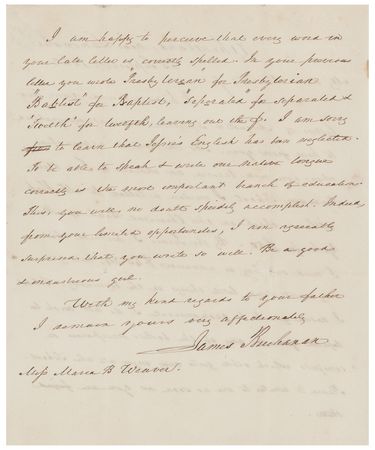 I am happy to perceive that every word in
your late letter is correctly spelled. In your previous
letter you wrote "Presbyteryan" for Presbyterian
"Babtist" for Baptist, "seperated" for separated &
for twelfth, leaving out the f. I am sorry
to learn that English has been neglected.
To be able to speak & write our native tongue
correctly is the most important branch of education.
This, you will, no doubt speedily accomplish. Indeed
from your limited opportunities, I am agreeably
surprised that you write so well. Be a good
& industrious girl.
With my kind regards to your father
I remain yours very affectionately
James Buchanan
Miss Maria B Weaver.